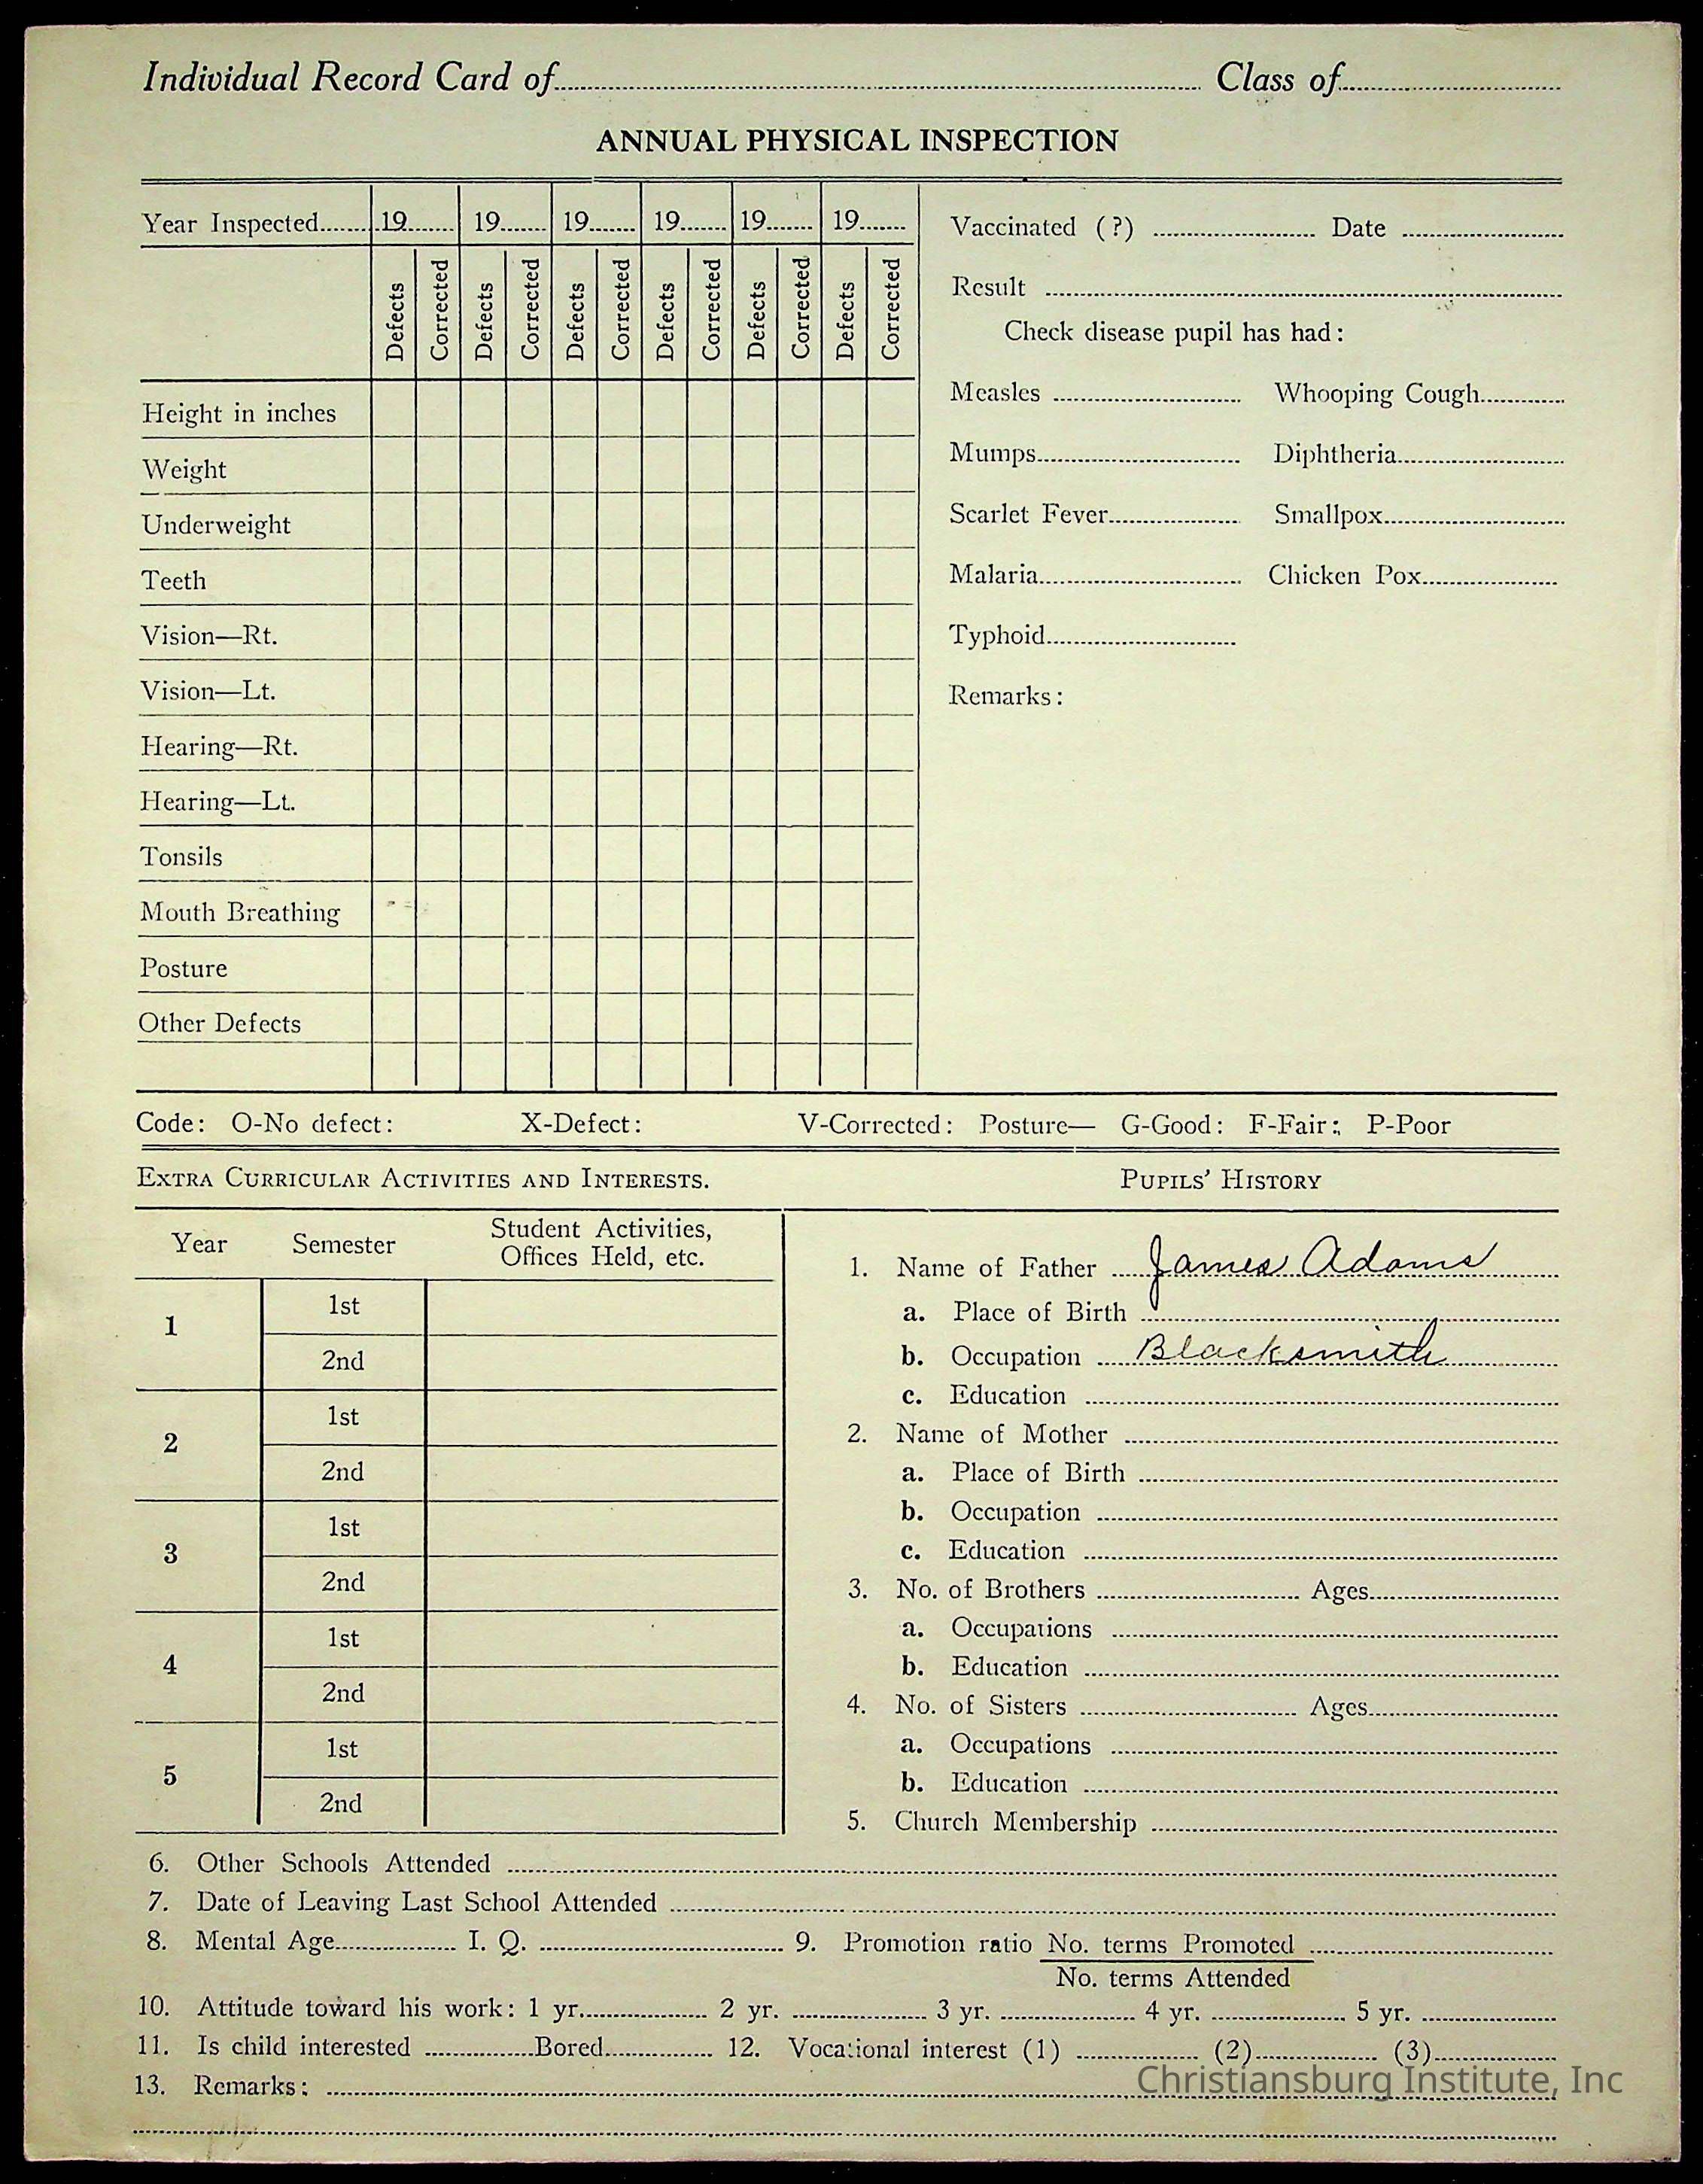 Individual Record Card of Class of
ANNUAL PHYSICAL INSPECTION
Year Inspected 19 19 19 19 19 19
Defects Corrected Defects Corrected Defects Corrected Defects Corrected Defects Corrected Defects Corrected
Height in inches
Weight
Underweight
Teeth
Vision—Rt.
Vision—Lt.
Hearing—Rt.
Hearing—Lt.
Tonsils
Mouth Breathing
Posture
Other Defects
Vaccinated (?) Date
Result
Check disease pupil has had:
Measles Whooping Cough
Mumps Diphtheria
Scarlet Fever Smallpox
Malaria Chicken Pox
Typhoid
Remarks:
Code: O-No defect: X-Defect: V-Corrected: Posture— G-Good: F-Fair: P-Poor
EXTRA CURRICULAR ACTIVITIES AND INTERESTS.
Year Semester Student Activities,
Offices Held, etc.
1 1st
2nd
2 1st
2nd
3 1st
2nd
4 1st
2nd
5 1st
2nd
PUPILS' HISTORY
1. Name of Father James Adams
a. Place of Birth
b. Occupation Blacksmith
c. Education
2. Name of Mother
a. Place of Birth
b. Occupation
c. Education
3. No. of Brothers Ages
a. Occupations
b. Education
4. No. of Sisters Ages
a. Occupations
b. Education
5. Church Membership
6. Other Schools Attended
7. Date of Leaving Last School Attended
8. Mental Age I. Q. 9. Promotion ratio No. terms Promoted
No. terms Attended
10. Attitude toward his work: 1 yr. 2 yr. 3 yr. 4 yr. 5 yr.
11. Is child interested Bored 12. Vocational interest (1) (2) (3)
13. Remarks:
Christiansburg Institute, Inc